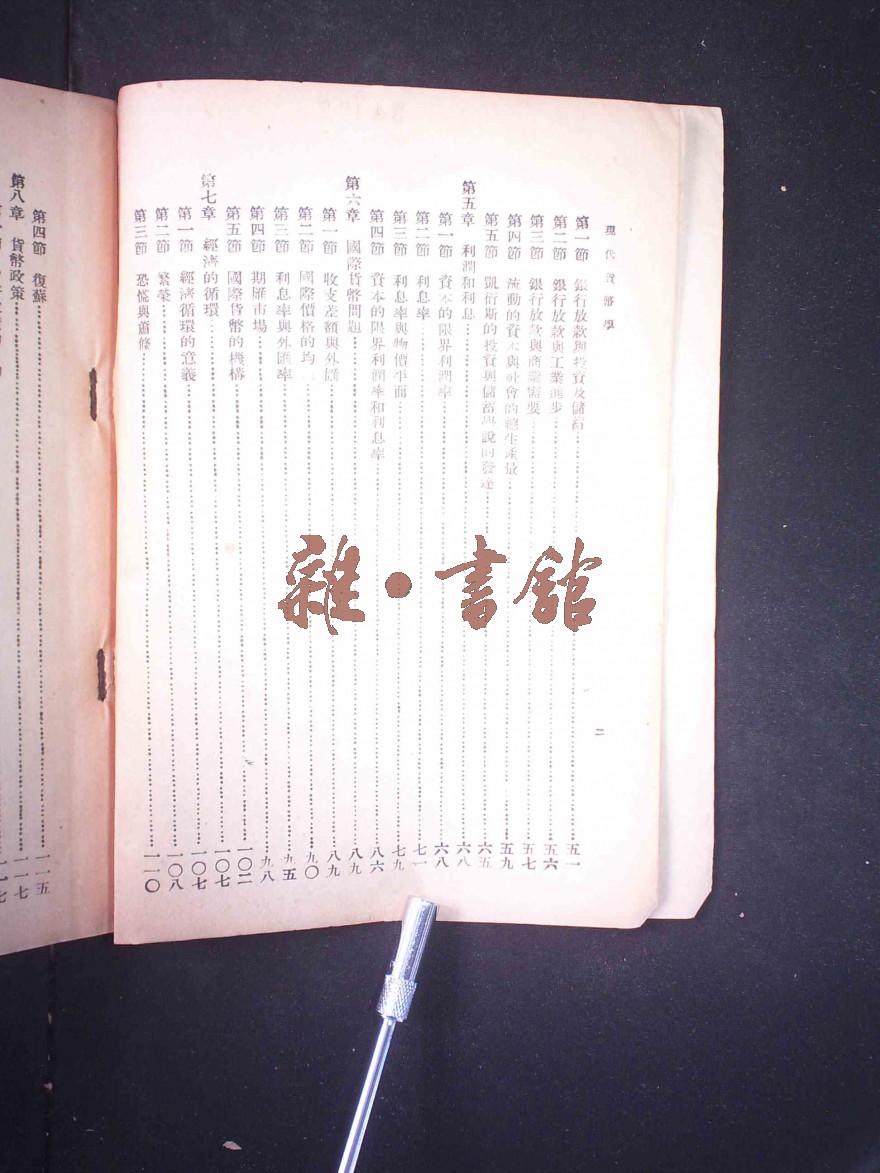 現代貨幣學
二
第一節 銀行放款與投資及儲蓄 五一
第二節 銀行放款與工業進步 五六
第三節 銀行放款與商業需要 五七
第四節 流動的資本與社會的總生產量 五九
第五節 凱衍斯的投資與儲蓄學說的發達 六五
第五章 利潤和利息 六八
第一節 資本的限界利潤率 六八
第二節 利息率 七一
第三節 利息率與物價平面 七九
第四節 資本的限界利潤率和利息率 八六
第六章 國際貨幣問題 八九
第一節 收支差額與外匯 八九
第二節 國際價格的均 九〇
第三節 利息率與外匯率 九五
第四節 期匯市場 九八
第五節 國際貨幣的機構 一〇二
第七章 經濟的循環 一〇七
第一節 經濟循環的意義 一〇七
第二節 繁榮 一〇八
第三節 恐慌與蕭條 一一〇
第四節 復蘇 一一五
第八章 貨幣政策 一一七
雜·書館